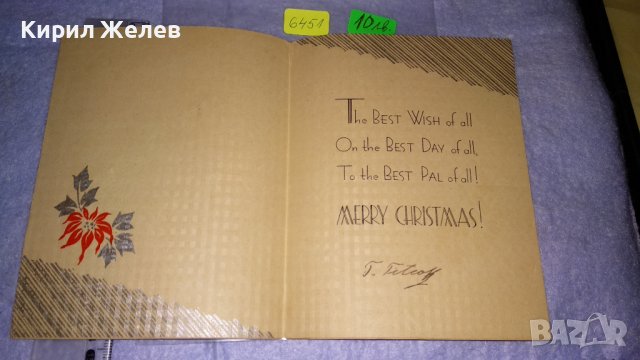 Кирил Желев
6451
10лв.
The BEST WISH of all
On the BEST DAY of all,
To the BEST PAL of all!
MERRY CHRISTMAS!
BAZAR